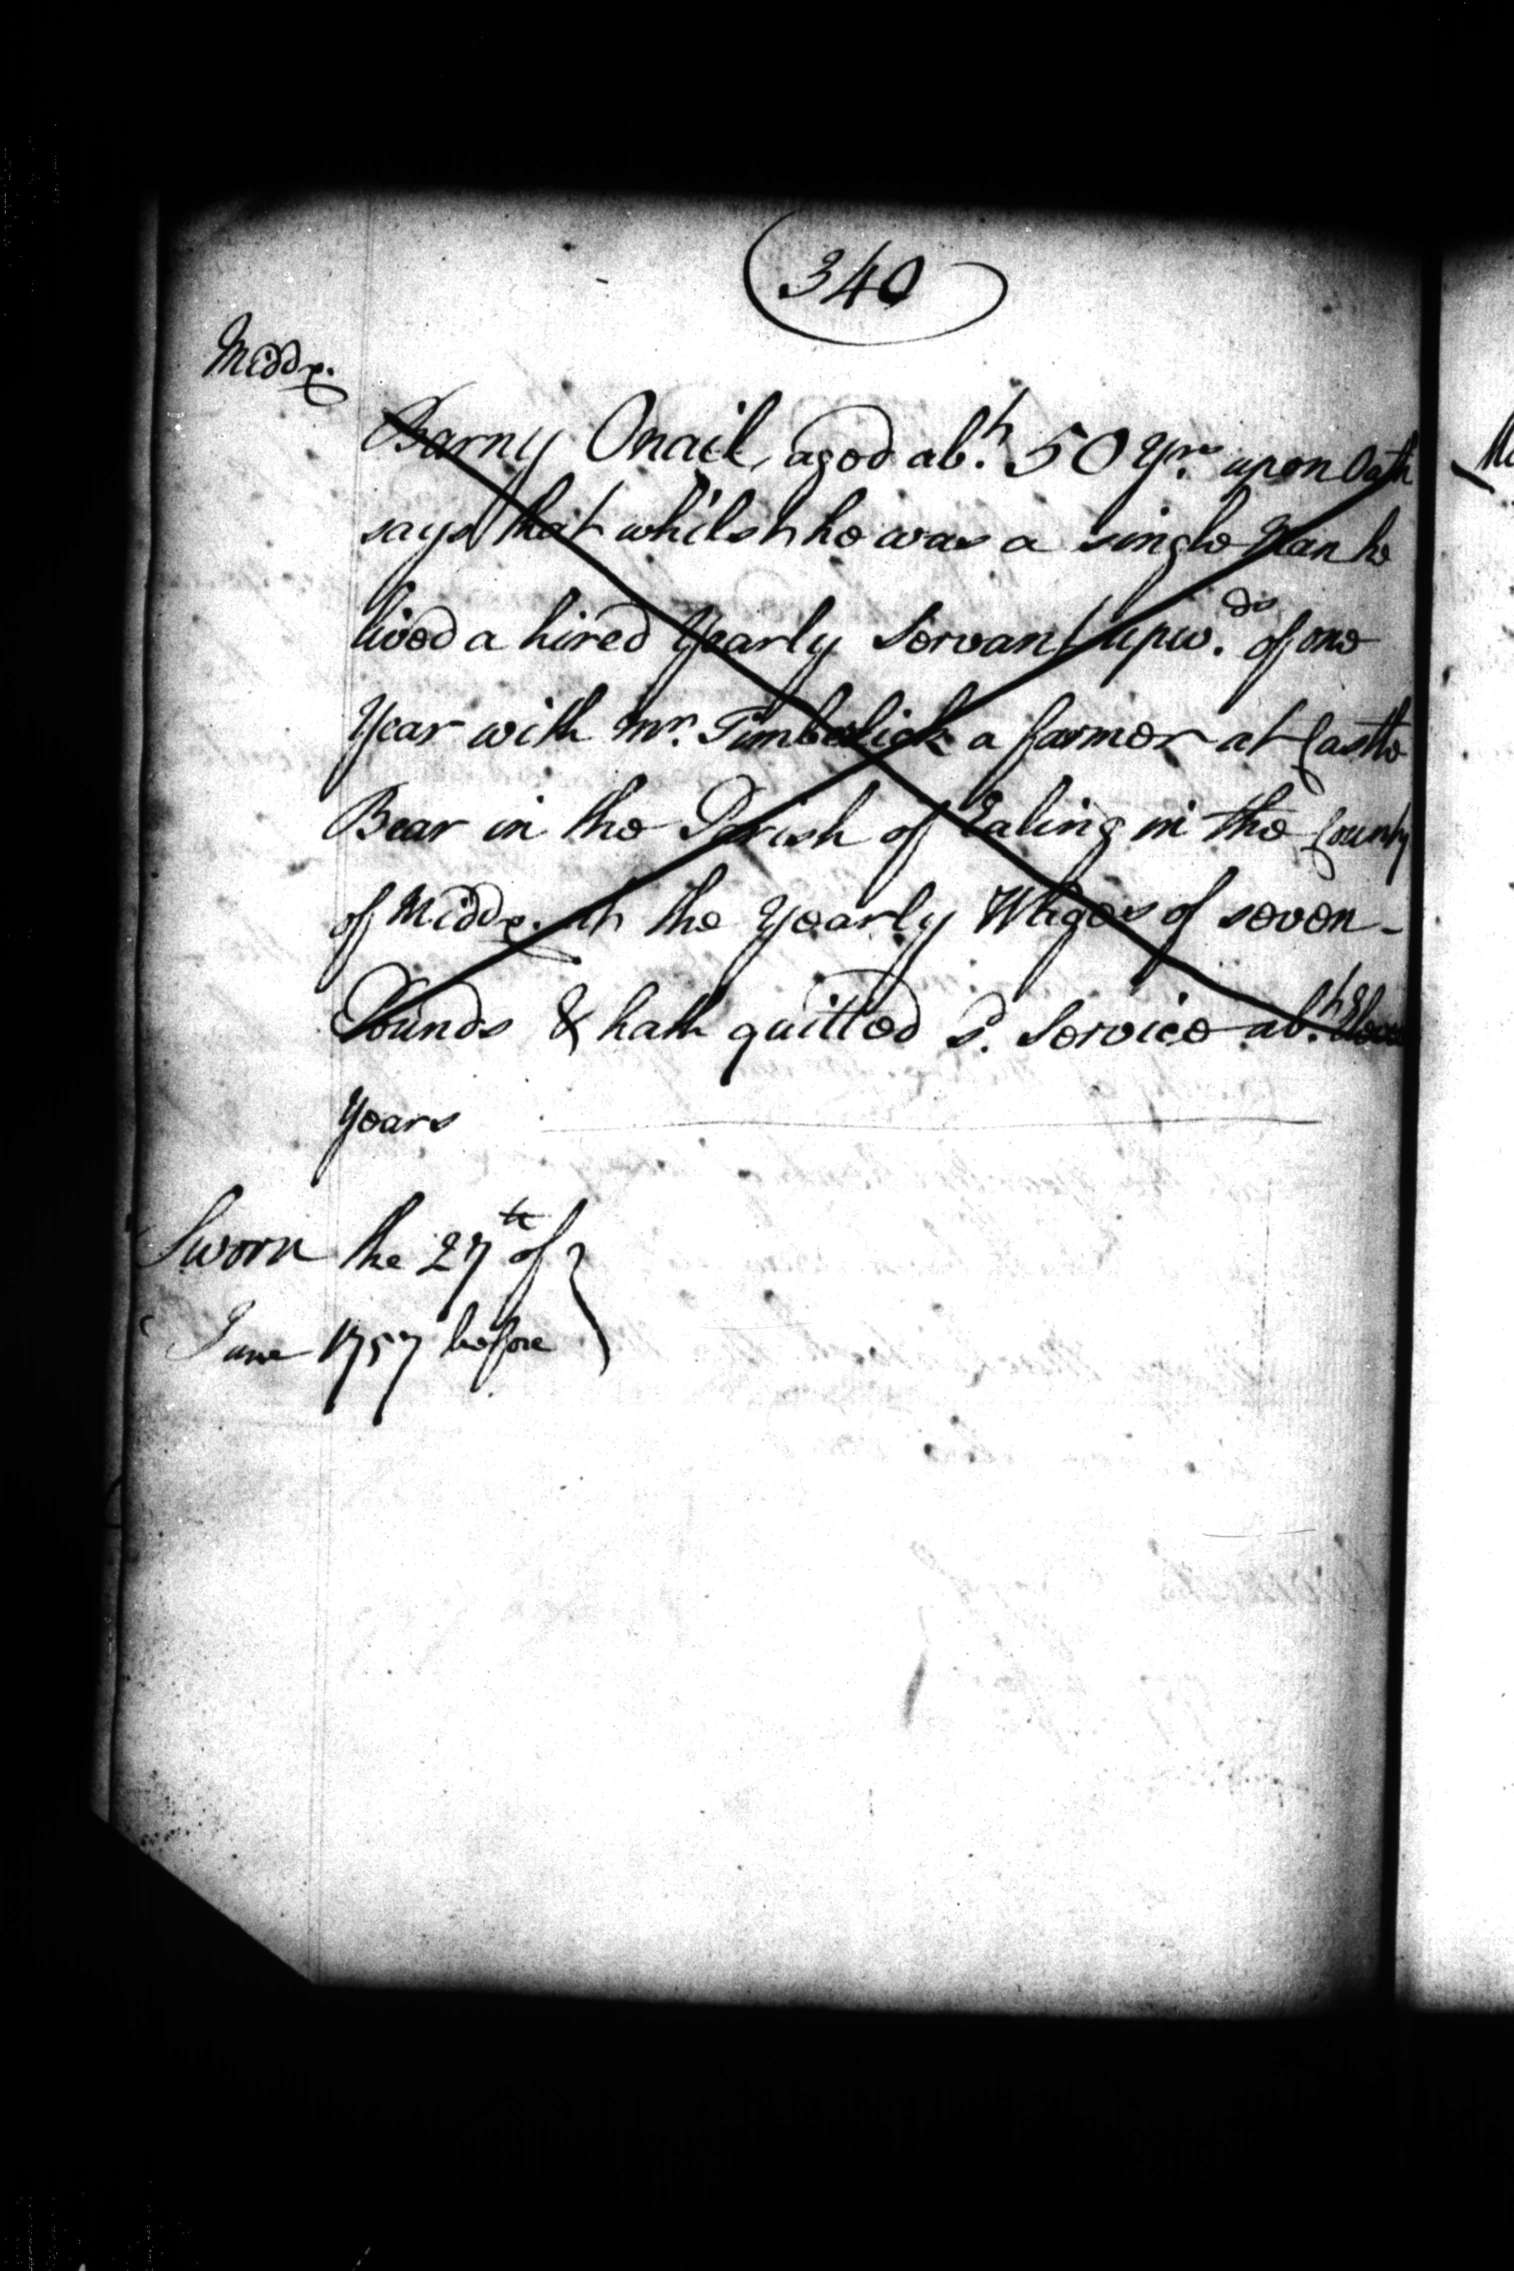 340
Middx.
Barny Onail, aged abt. 50 Yrs. upon Oath
says that whilst he was a single Man he
lived a hired Yearly Servant upwds. of one
Year with Mr. Timberlick a farmer at Castle
Bear in the Parish of Ealing in the County
of Middx. at the Yearly Wages of seven -
Pounds & hath quitted sd. Service abt.
Years
Sworn the 27th of
June 1757 before